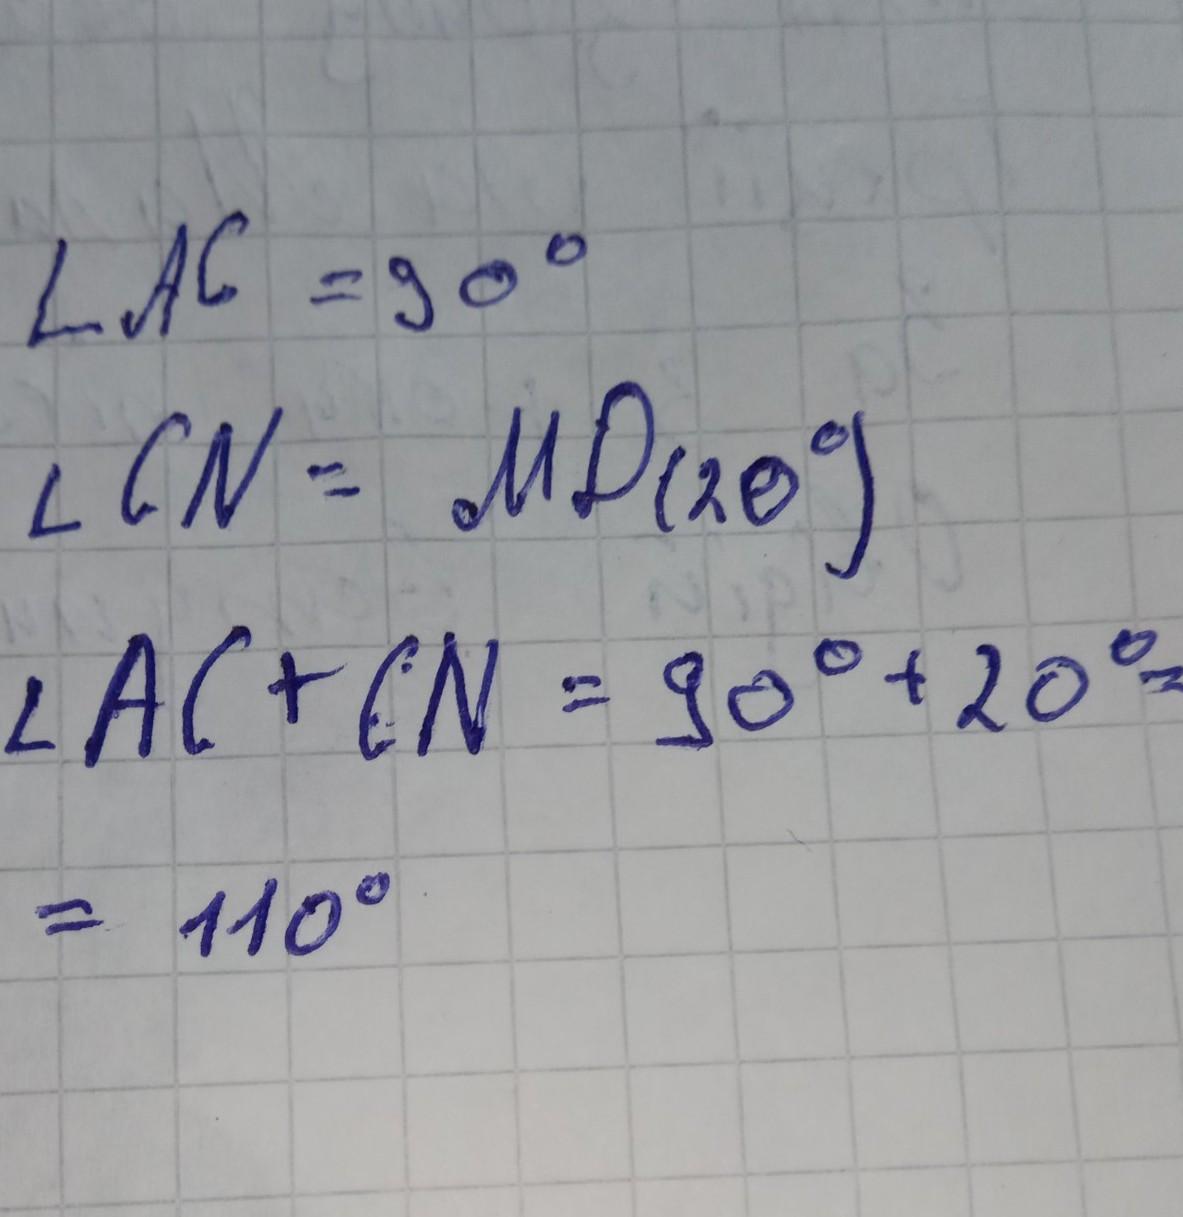 ∠AC = 90°
∠CN = MD(20°)
∠AC + CN = 90° + 20° =
= 110°